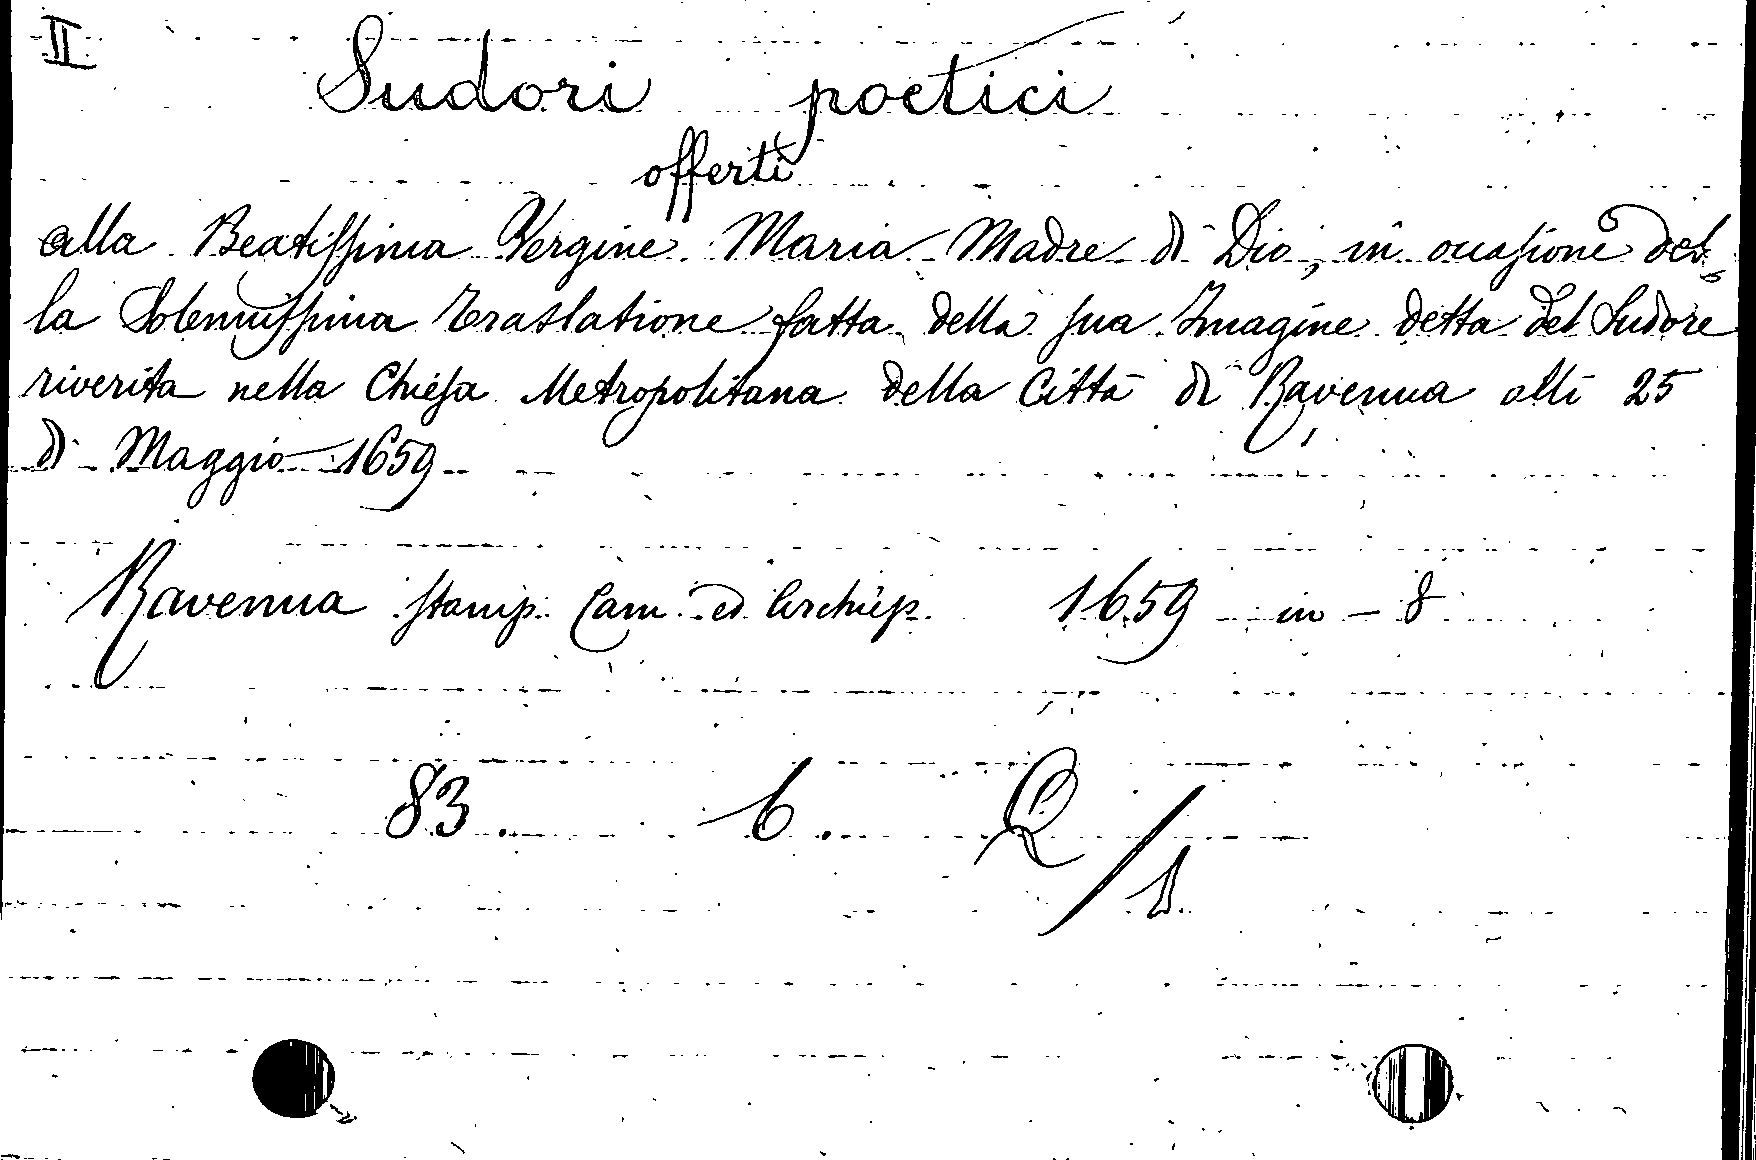 II
Sudori poetici
offerti
alla Beatissima Vergine Maria Madre di Dio, in occasione del-
la Solennissima traslatione fatta della sua Imagine detta del Sudore
riverita nella Chiesa Metropolitana della Città di Ravenna alli 25
di Maggio 1659
Ravenna stamp. Cam. ed Archiep. 1659 in-8
83. 6. Q/1